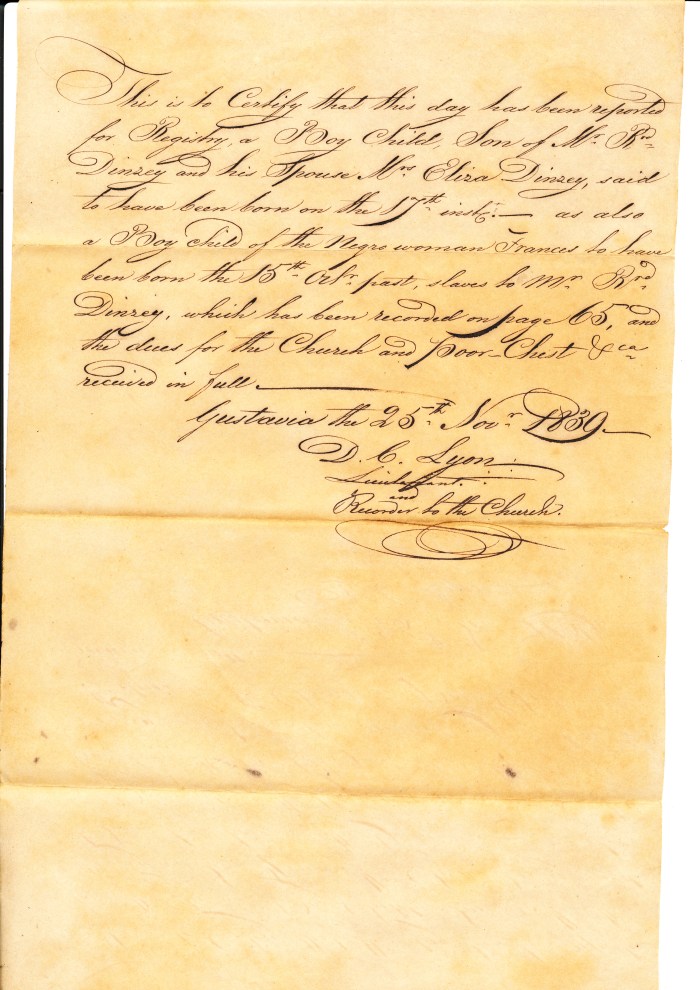 This is to Certify that this day has been reported
for Registry, a Boy Child, Son of Mr. Rd.
Dinzey and his Spouse Mrs Eliza Dinzey, said
to have been born on the 17th instt. — as also
a Boy child of the Negro woman Frances to have
been born the 15th Octr. past, slaves to Mr Rd.
Dinzey, which has been recorded on page 65, and
the dues for the Church and Poor-Chest &ca
received in full.
Gustavia the 25th Novr. 1839.
D. C. Lyon
Lieutenant.
and
Recorder to the Church.